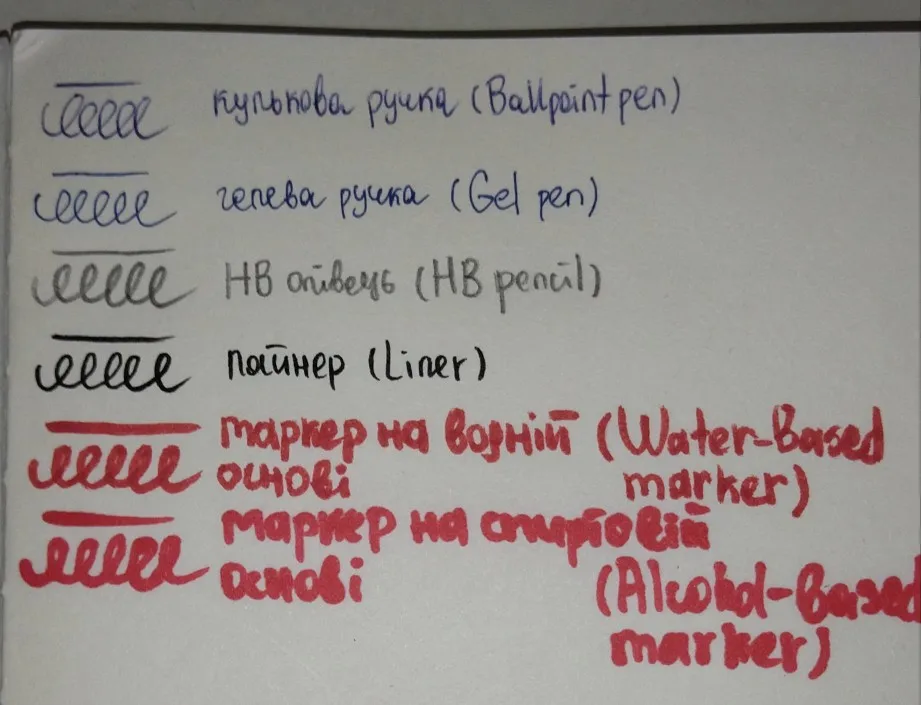 кулькова ручка (Ballpoint pen)
гелева ручка (Gel pen)
НВ олівець (HB pencil)
лайнер (Liner)
маркер на водній (Water-Based
основі marker)
маркер на спиртовій
основі (Alcohol-based
marker)